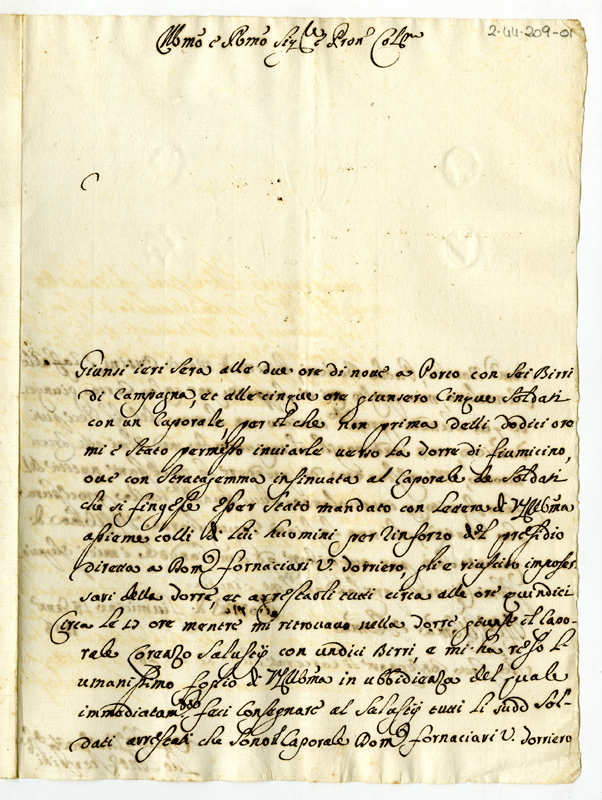 2-44-209-01
Illmo e Rmo Sigre e Pron Colmo
Giunsi ieri sera alle due ore di notte a Porto con sei Birri
di Campagna, et alle cinque ore giunsero Cinque Soldati
con un Caporale, per il che non prima delli dodici ore
mi è stato permesso inviarle verso la Torre di fiumicino,
oue con stratagemma insinuata al Caporale de Soldati
che si fingesse esser stato mandato con lettera di V.S. Illma
assieme colli di lui huomini per rinforzo del presidio
diretta a Domco fornaciari V. Torriero, gli è riuscito imposes
sarsi della Torre, et arrestarli tutti circa alle ore quindici
Circa le 17 ore mentre mi ritrovavo nella Torre giunse il Capo-
rale Lorenzo Salustij con undici Birri, e mi ha reso l'
umanissimo foglio di V.S. Illma in ubbidienza del quale
immediatamte feci consegnare al Salustij tutti li sudd Sol-
dati arrestati che sono il Caporale Domco fornaciari V. Torriero